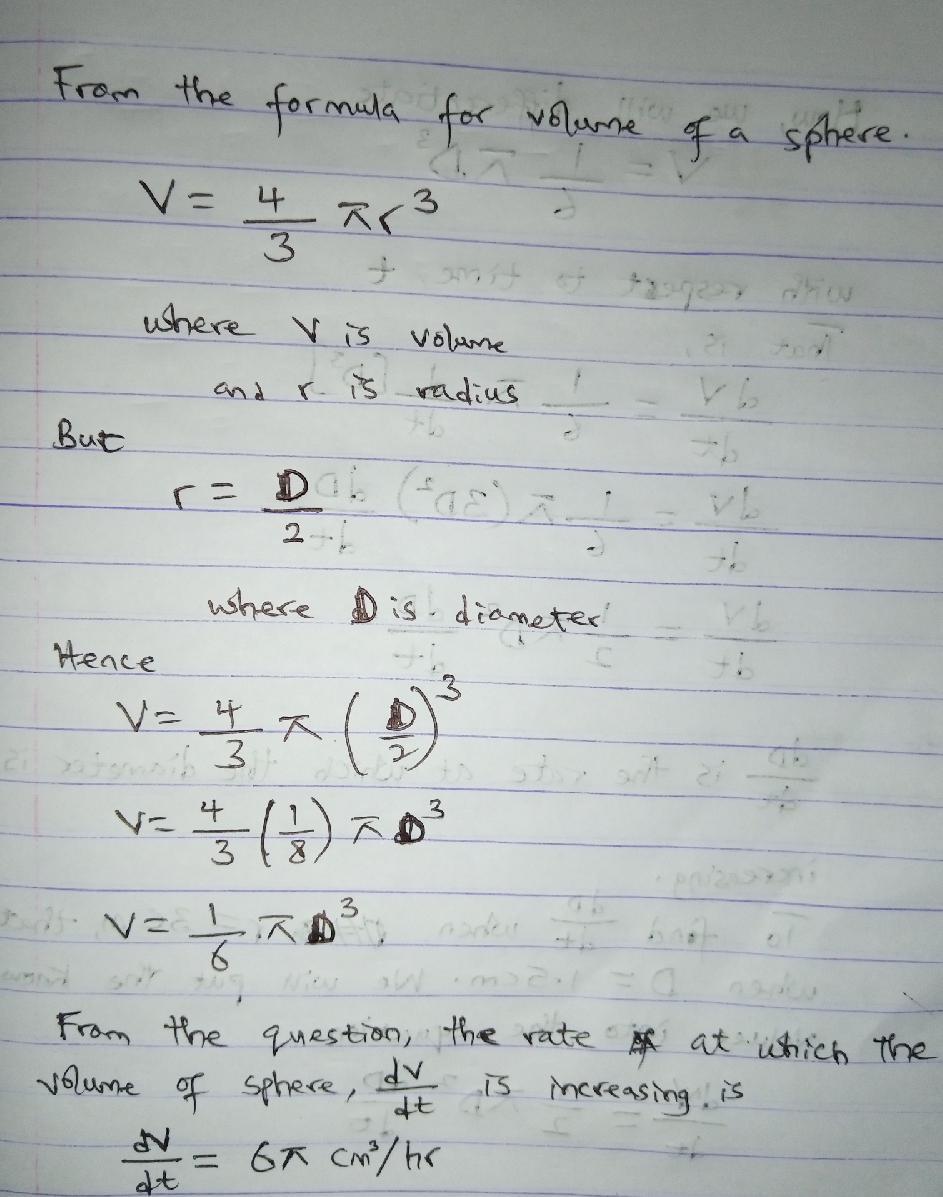 From the formula for volume of a sphere.
V = 4/3 πr³
where V is volume
and r is radius
But
r = D/2
where D is diameter
Hence
V = 4/3 π (D/2)³
V = 4/3 (1/8) π D³
V = 1/6 π D³
From the question, the rate at which the
volume of sphere, dV/dt is increasing is
dV/dt = 6π cm³/hr